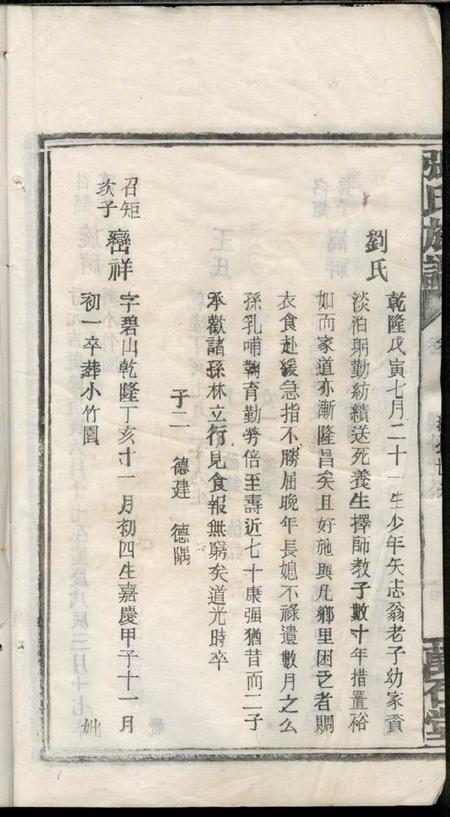 張氏族譜
劉氏
乾隆戊寅七月二十一生少年矢志翁老子幼家資
淡泊躬勤紡績送死養生擇師教子數十年措置裕
如而家道亦漸隆昌矣且好施與凡鄉里困乏者賙
衣食赴緩急指不勝屈晚年長媳不祿遺數月之么
孫乳哺鞠育勤勞倍至壽近七十康强猶昔而二子
承歡諸孫林立行見食報無窮矣道光時卒
子二 德建 德隅
召矩次子 巒祥
字碧山乾隆丁亥十一月初四生嘉慶甲子十一月
初一卒葬小竹園